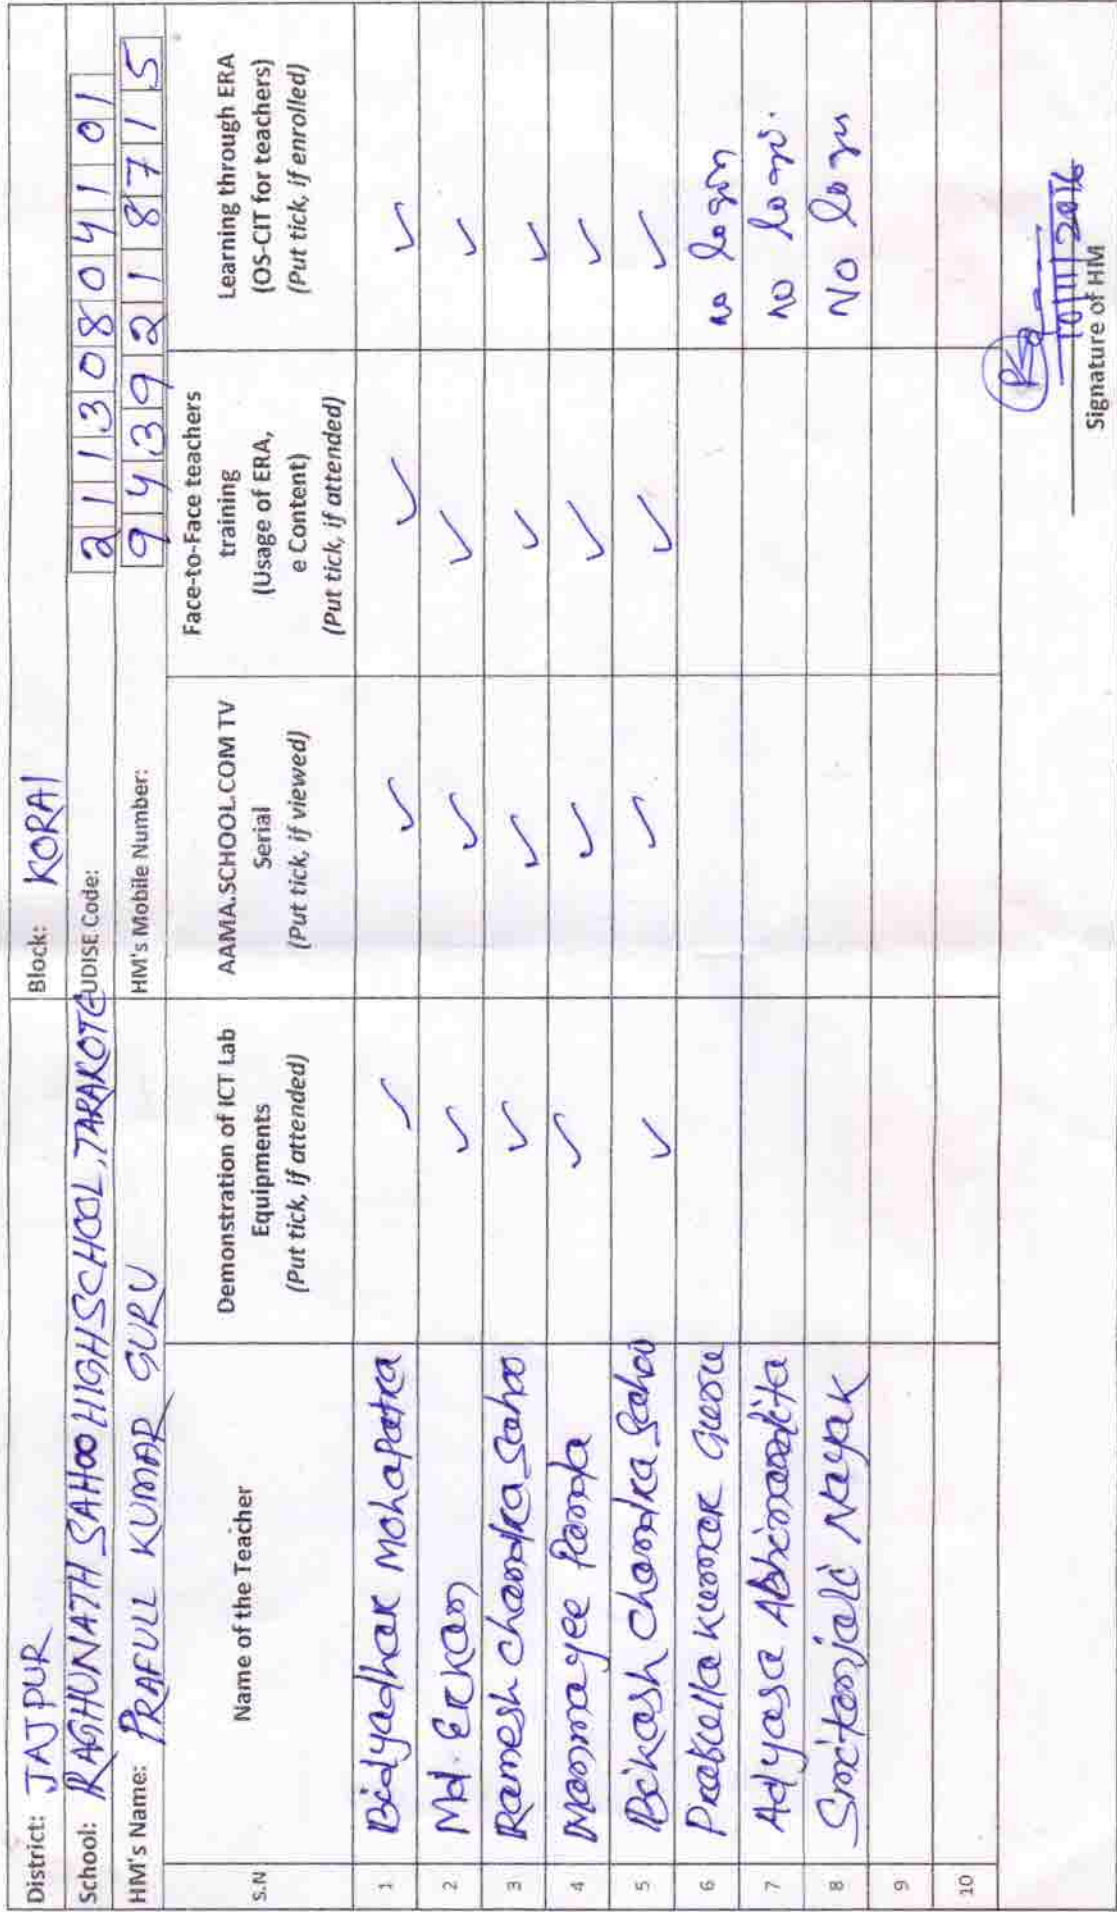 District: JAJPUR Block: KORAI
School: RAGHUNATH SAHOO HIGH SCHOOL, TARAKOTE UDISE Code: 21130804101
HM's Name: PRAFULL KUMAR GURU HM's Mobile Number: 9439218715
S.N Name of the Teacher Demonstration of ICT Lab Equipments (Put tick, if attended) AAMA.SCHOOL.COM TV Serial (Put tick, if viewed) Face-to-Face teachers training (Usage of ERA, e Content) (Put tick, if attended) Learning through ERA (OS-CIT for teachers) (Put tick, if enrolled)
1 Bidyadhar Mohapatra ✓ ✓ ✓ ✓
2 Md. Erkan ✓ ✓ ✓ ✓
3 Ramesh chandra Sahoo ✓ ✓ ✓ ✓
4 Manmayee Panda ✓ ✓ ✓ ✓
5 Bikash Chandra Sahoo ✓ ✓ ✓ ✓
6 Prafulla Kumar Guru no login
7 Adyasa Abhinandita no logi.
8 Smitanjali Nayak No logn
9
10
10/11/2016
Signature of HM